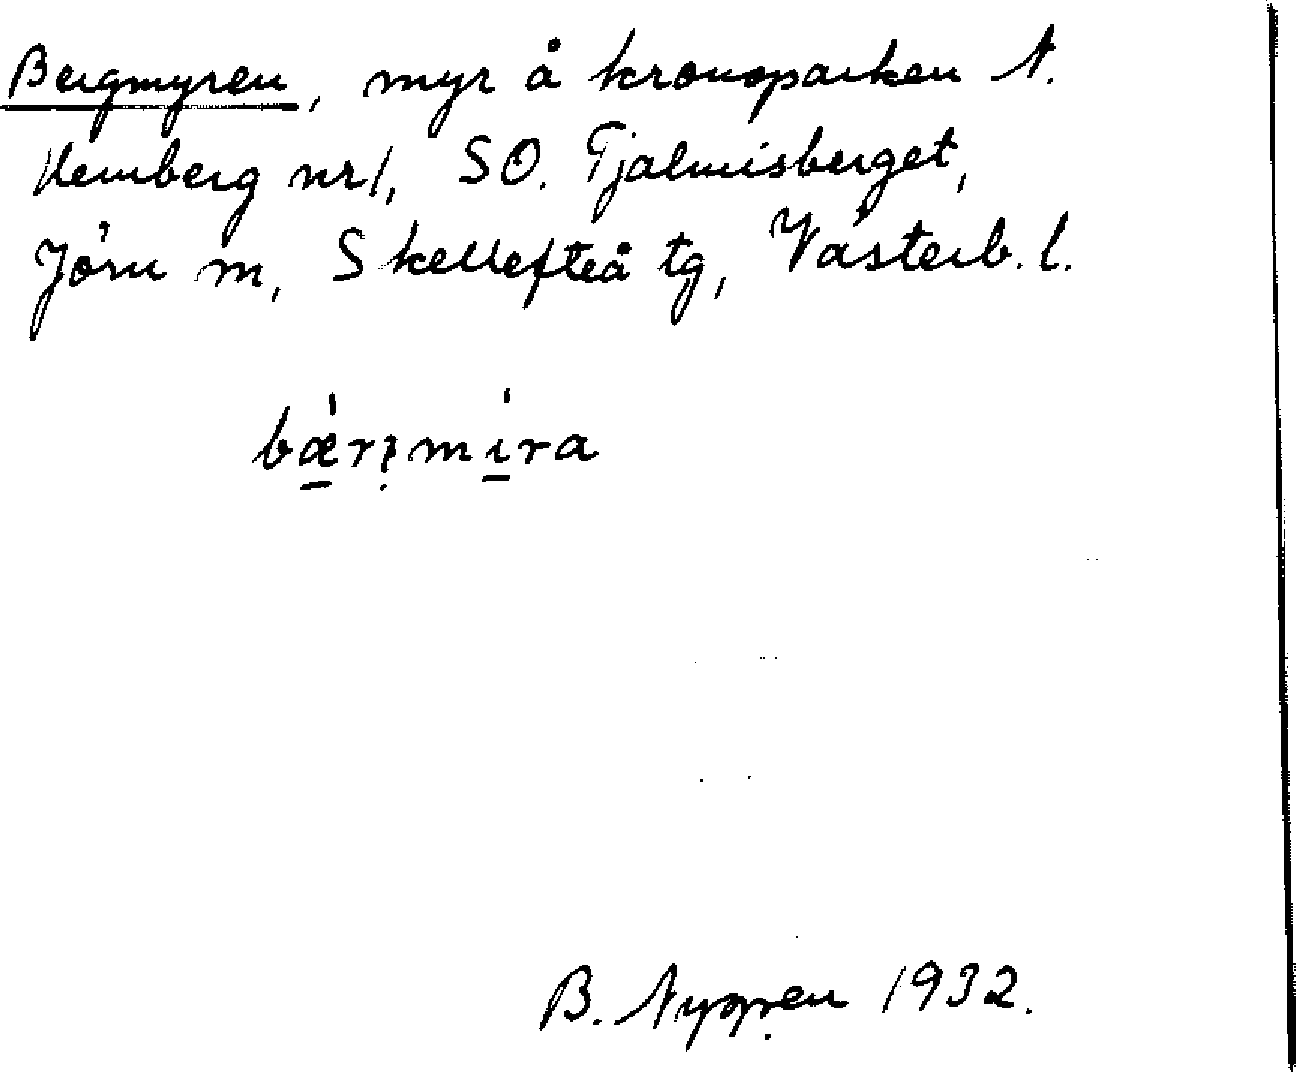 Bergmyren, myr å kronoparken N.
Hemberg nr 1, SO. Tjalmisberget,
Jörn m, Skellefteå tg, Västerb. l.
bǽrı̣míra
B. Nygren 1932.